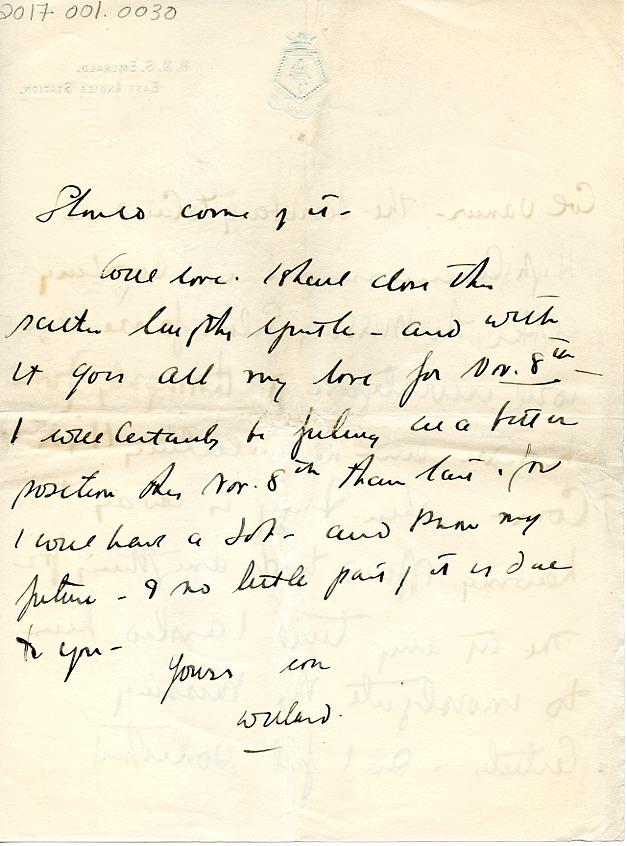 2017.001.0030
H.M.S. EMERALD.
EAST INDIES STATION.
Should come of it -
Well love. I shall close this
rather lengthy epistle - and with
it goes all my love for Nov. 8th -
I will certainly be feeling in a better
position this Nov. 8th than last. for
I will have a Job - and know my
future - & no little part of it is due
to you -
Yours ever
Willard.